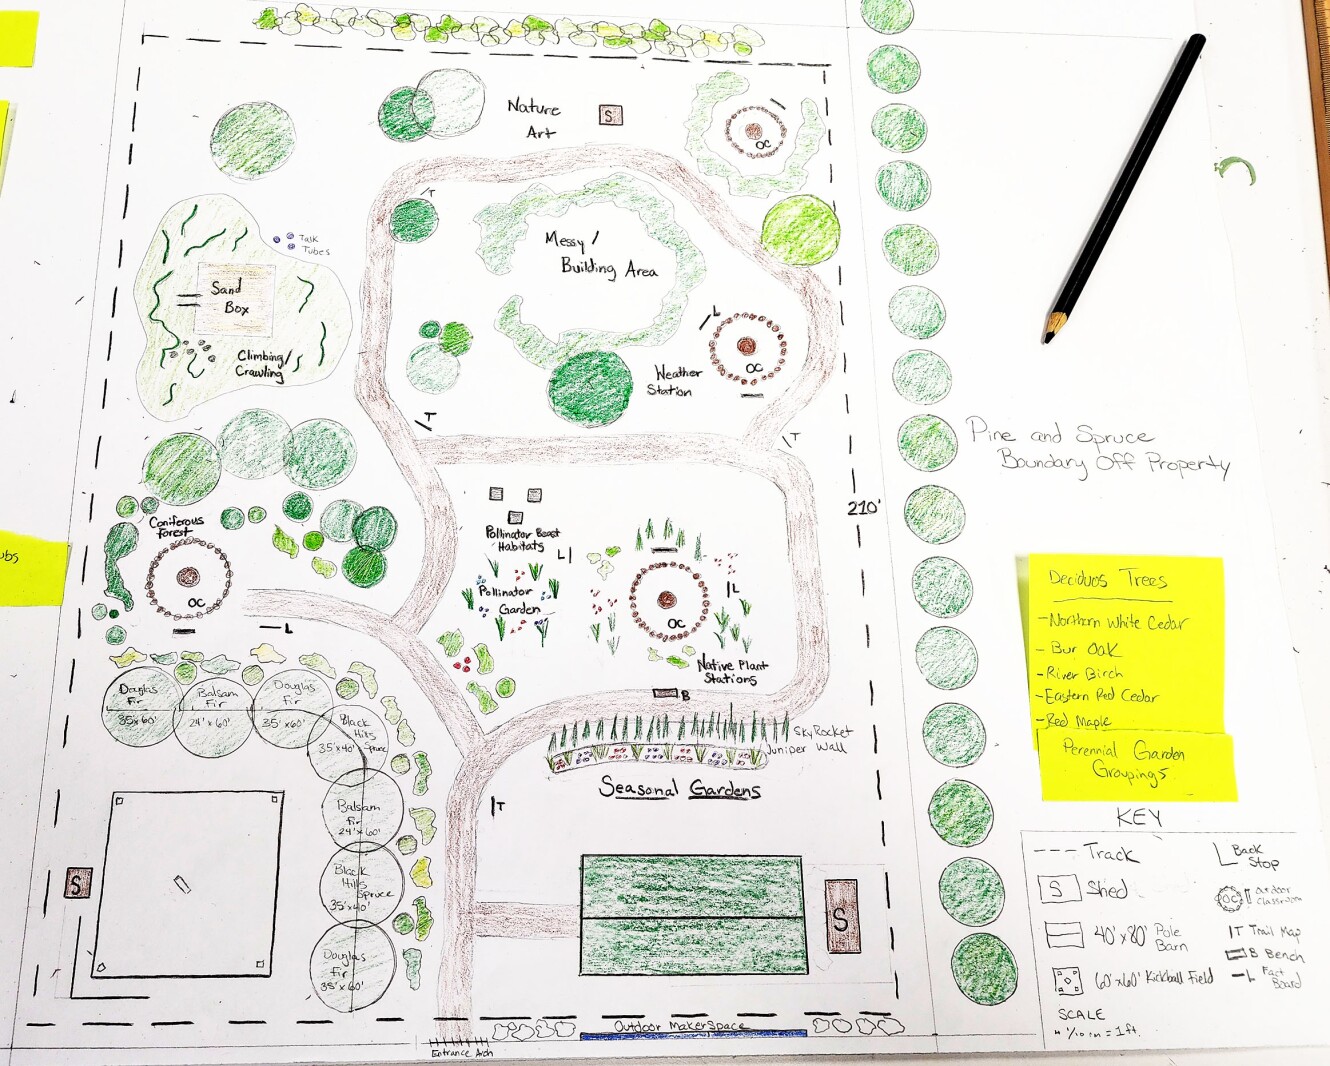 Nature
Art
S
OC
T
Messy/
Building Area
Talk
Tubes
Sand
Box
Climbing/
Crawling
L
Weather
Station
OC
T
T
Pine and Spruce
Boundary Off Property
210'
Coniferous
forest
OC
L
Pollinator Beast
Habitats
L
Pollinator
Garden
L
OC
Native Plant
Stations
B
ubs
Douglas
Fir
35'x60'
Balsam
Fir
24'x60'
Douglas
Fir
35'x60'
Black
Hills
Spruce
35'x40'
Balsam
fir
24'x60'
Black
Hills
Spruce
35'x40'
Douglas
Fir
35'x60'
SkyRocket
Juniper Wall
Seasonal Gardens
T
S
S
Outdoor MakerSpace
Entrance Arch
Deciduos Trees
-Northern White Cedar
-Bur Oak
-River Birch
-Eastern Red Cedar
-Red Maple
Perennial Garden
Groupings
KEY
Track
S Shed
40'x80' Pole
Barn
60'x60' Kickball Field
SCALE
1/10 in = 1ft.
Back
Stop
OC Outdoor
Classroom
T Trail Map
B Bench
L Fact
Board